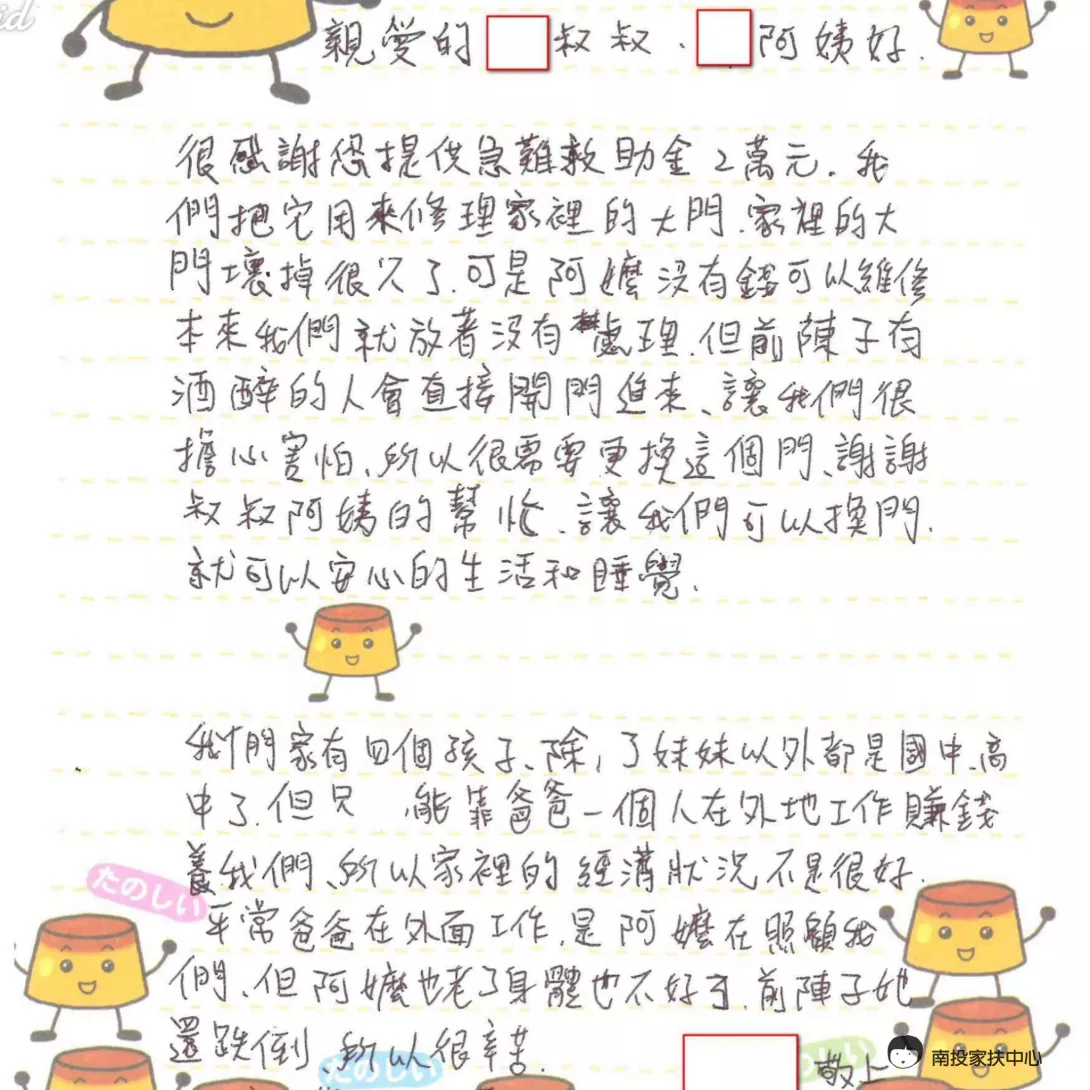 id
親愛的 叔叔、 阿姨好.
很感謝您提供急難救助金2萬元. 我
們把它用來修理家裡的大門.家裡的大
門壞掉很久了.可是阿嬤沒有錢可以維修
本來我們就放著沒有處理.但前陳子有
酒醉的人會直接開門進來、讓我們很
擔心害怕、所以很需要更換這個門、謝謝
叔叔阿姨的幫忙、讓我們可以換門.
就可以安心的生活和睡覺.
我們家有四個孩子、除了妹妹以外都是國中、高
中了.但只能靠爸爸一個人在外地工作賺錢
養我們、所以家裡的經濟狀況不是很好.
平常爸爸在外面工作.是阿嬤在照顧我
們、但阿嬤也老了身體也不好了.前陣子她
還跌倒、所以很辛苦.
敬上
たのしい
たのしい
たのしい
南投家扶中心